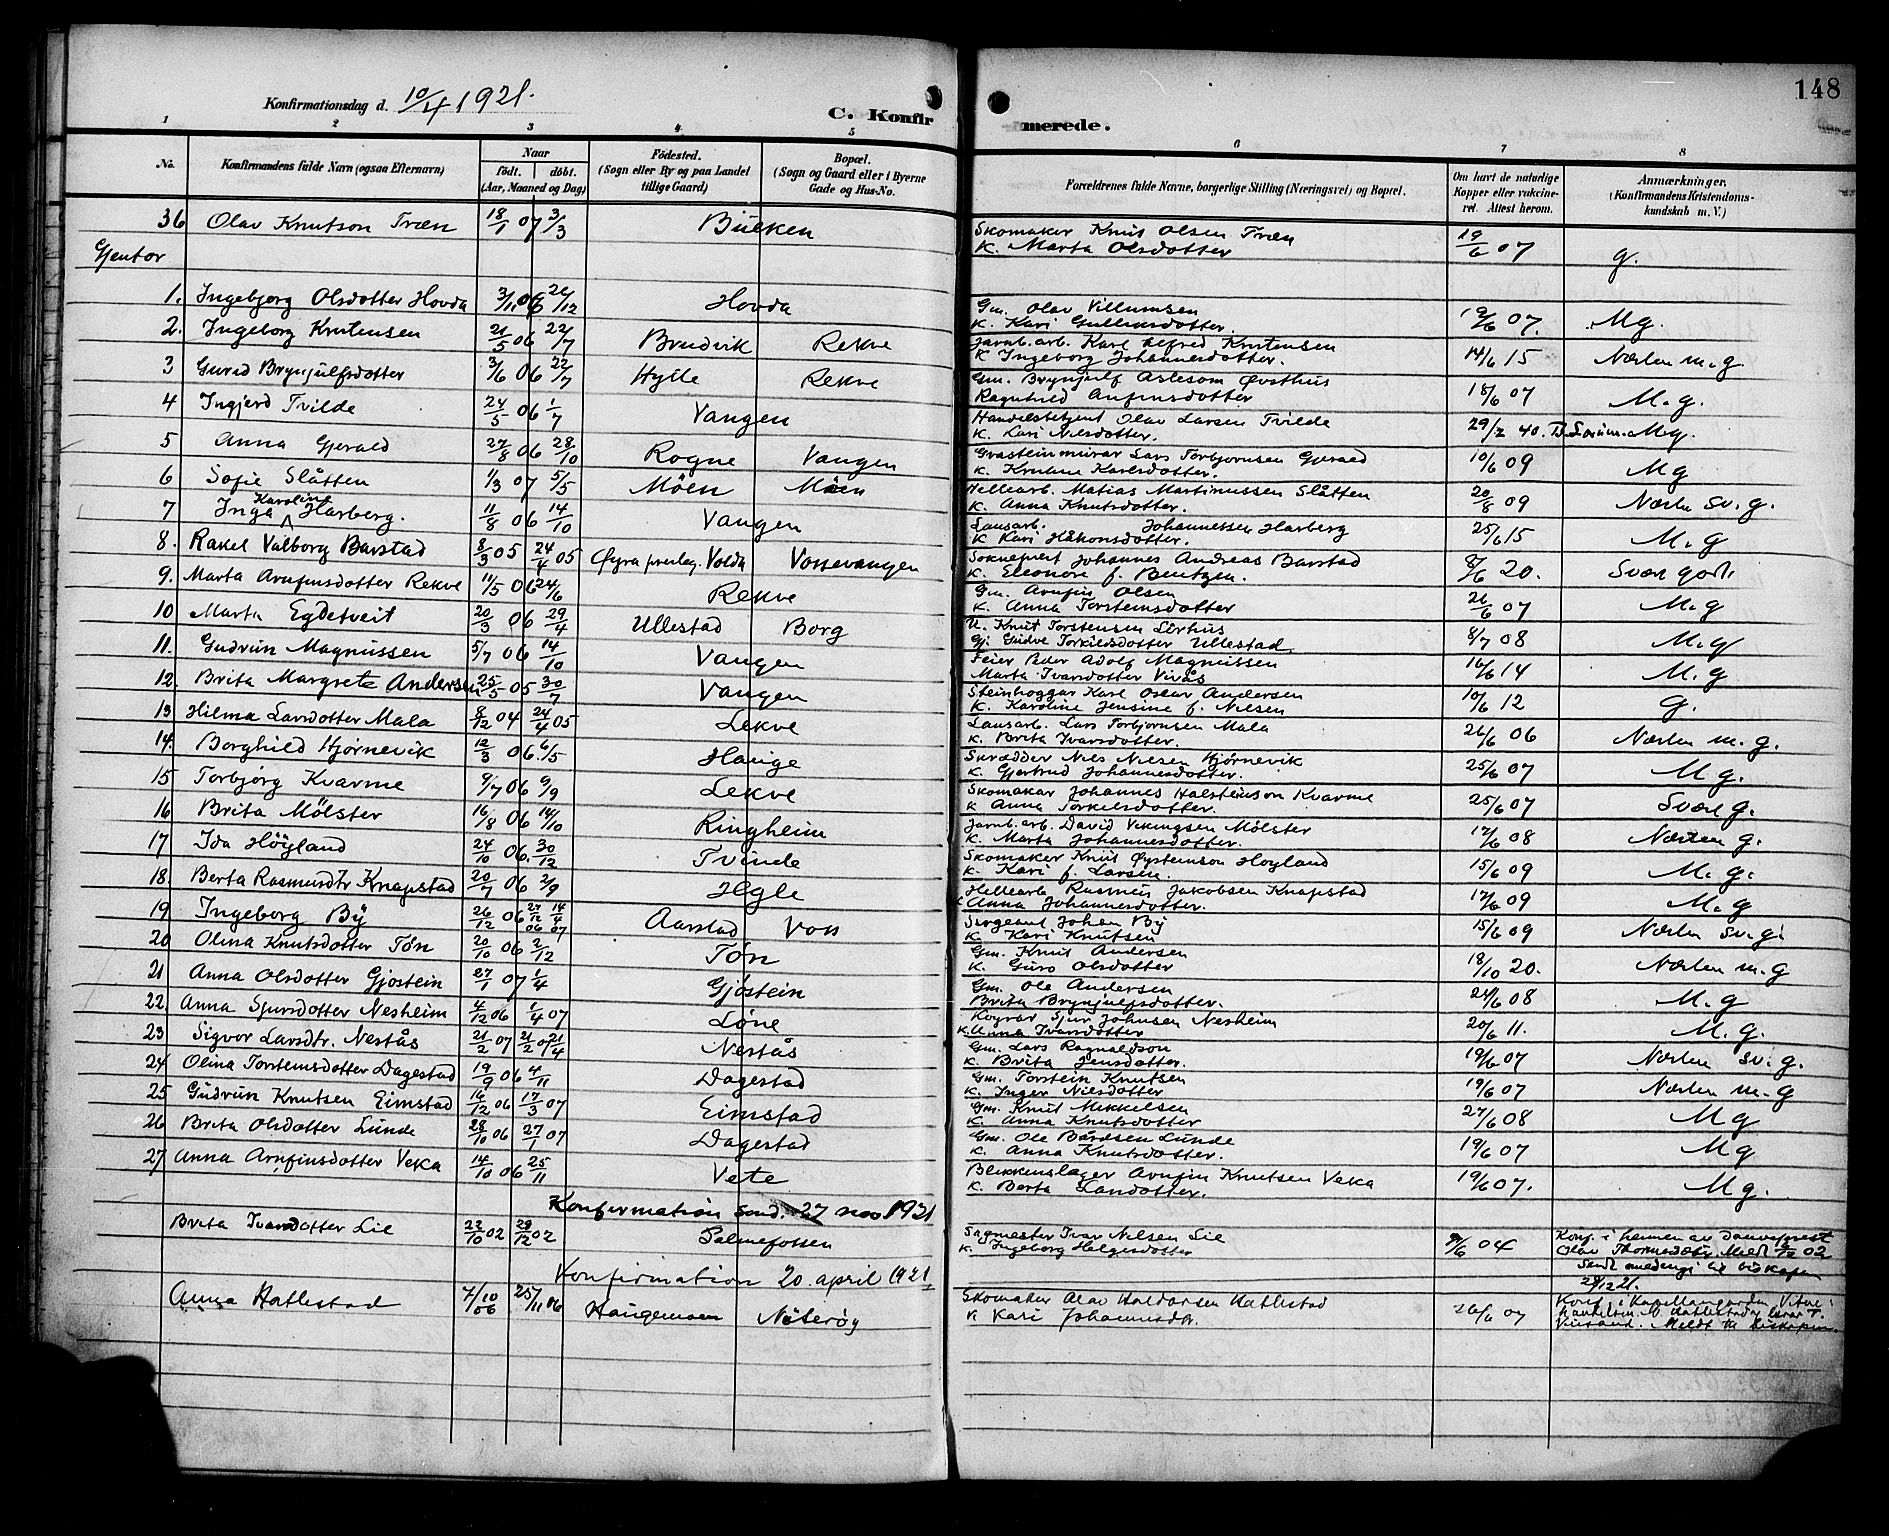 148
Konfirmationsdag d. 10/4 1921.
C. Konfirmerede.
1 2 3 4 5 6 7 8
No. Konfirmandens fulde Navn (ogsaa Efternavn) Naar födt. döbt. (Aar, Maaned og Dag) Födested. (Sogn eller By og paa Landet tillige Gaard) Bopæl. (Sogn og Gaard eller i Byerne Gade og Hus-No. Forældrenes fulde Navne, borgerlige Stilling (Næringsvei) og Bopæl. Om havt de naturlige Kopper eller vaccineret. Attest herom. Anmærkninger. (Konfirmandens Kristendomskundskab m. V.)
36 Olav Knutson Træn 18/1 07 3/3 Bueken Skomaker Knut Olsen Træn K. Marta Olsdotter 19/6 07 g.
Gjentor
1. Ingebjørg Olsdotter Hovda 3/11 06 26/12 Hovda Gm. Olav Villumsen K. Kari Gulliksdotter. 19/6 07. Mg.
2. Ingeborg Kristensen 21/5 06 22/7 Brudvik Rekve Jarnb.arb. Karl Alfred Kristensen K Ingeborg Johannesdotter. 14/6 15 Næsten m. g
3 Gurid Brynjulfsdotter 3/6 06 22/7 Hylle Rekve Gm. Brynjulf Aslesom Øvsthus Ragnhild Anfinsdotter 18/6 07 M. g.
4 Ingjerd Tvilde 24/5 06 1/7 Vangen Handelsbetjent Olav Larsen Tvilde K. Kari Nilsdotter. 29/2 40. Mg.
5 Anna Gjerald 27/8 06 28/10 Rogne Vangen Graasteinmurar Lars Torbjornsen Gjerald K. Kristine Karlsdotter. 10/6 09 Mg
6 Sofie Slåtten 11/3 07 5/5 Möen Möen Hellearb. Matias Martinussen Slåtten K. Anna Knutsdotter. 20/8 09 Næsten Sv. g.
7 Inga Karoline Harberg. 11/8 06 14/10 Vangen Lausarb. Johannessen Harberg K Kari Håkonsdotter. 25/6 15 M. g
8. Rakel Valborg Barstad 8/3 05 24/4 05 Øyra presteg. Volda Vossevangen Sokneprest Johannes Andreas Barstad K. Eleonore f. Bentzen. 8/6 20. Svært godt.
9. Marta Arnfinsdotter Rekve 11/5 06 24/6 Rekve Gm. Arnfin Olsen K. Anna Torsteinsdotter 26/6 07 M. g
10 Marta Egdetveit 20/3 06 29/4 Ullestad Borg U. Knut Torstensen Lirhus Gj. Gudve Torkilsdotter Ullestad 8/7 08 M. g
11. Gudrun Magnussen 5/7 06 14/10 Vangen Feier Peder Adolf Magnussen Marta Ivarsdotter Virås 16/6 14 M. g
12. Brita Margrete Andersen 25/5 05 30/7 Vangen Steinhoggar Karl Oscar Andersen K. Karoline Jensine f. Nilsen 10/6 12 g.
13 Hilma Larsdotter Mala 8/12 04 24/4 05 Lekve Lausarb. Lars Torbjornsen Mala K. Brita Ivarsdotter. 26/6 06 Næsten m. g.
14. Borghild Hjørnevik 12/3 06. 6/5 Hauge Skrædder Nils Nilsen Hjørnevik K. Gjertrud Johannesdotter. 25/6 07 M g.
15 Torbjørg Kvarme 9/7 06 9/9 Lekve Skomakar Johannes Halsteinson Kvarme K Anna Torkelsdotter. 25/6 07 Svært g.
16 Brita Mölster 16/8 06 14/10 Ringheim Jarnb.arb. David Vikingsen Mølster K. Marta Johannesdotter. 12/6 08 Næsten g.
17 Ida Höyland 24/10 06. 30/12 Tvinde Skomaker Knut Øysteinson Høyland K. Kari f. Larsen. 15/6 09 M. g.
18. Berta Rasmusdtr Knapstad 20/7 06 2/9 Hegle Hellearb Rasmus Jakobsen Knapstad K Anna Johannesdotter. 17/6 09 M. g
19 Ingeborg Bÿ 26/12 06 27/12 06 14/4 07 Aarstad Voss Sergeant Johan Bÿ K. Kari Knutsen 15/6 09 Næsten Sv. g.
20 Olina Knutsdotter Tøn 20/10 06 2/12 Tøn Gm. Knut Andersen K. Guro Olsdotter 18/10 20. Næsten m. g
21 Anna Olsdotter Gjøstein 27/1 07 1/4 Gjöstein Gm. Ole Andersen Brita Brynjulfsdotter. 24/6 08 M. g
22 Anna Sjursdotter Nesheim 4/12 06 1/4 07 Löne Sjur Johnsen Nesheim K. Anna Ivarsdotter 20/6 11. M. g.
23 Sigvor Larsdtr. Nestås 21/2 07 21/2 07 21/4 Nestås Gm. Lars Ragnaldson K. Brita Jensdotter. 19/6 07 Næsten sv. g.
24 Olina Torsteinsdotter Dagestad 19/9 06 4/11 Dagestad Gm. Torstein Knutsen K. Inger Nilsdotter 19/6 07 Næsten m. g
25 Gudrun Knutsen Eimstad 16/12 06 17/3 07 Eimstad Gm. Knut Mikkelsen K. Anna Knutsdotter 27/6 08 Mg
26 Brita Olsdotter Lunde 28/10 06 27/1 07 Dagestad Gm. Ole Bårdsen Lunde K. Anna Knutsdotter. 19/6 07 Mg
27 Anna Arnfinsdotter Veka 14/10 06 25/11 Vete Blikkenslager Arnfin Knutsen Veka K. Berta Larsdotter. 19/6 07. M g.
Konfirmation Sønd. 27 nov 1921
Brita Ivarsdotter Lie 22/10 02 29/12 02 Palmefossen Sagmester Ivar Nilsen Lie K. Ingeborg Helgesdotter 9/6 04 Konf. i heimen av Døveprest Olav Meldt 6/12 02 Sendt melding til biskopen 28/12 21.
Konfirmation 20. april 1921
Anna Hatlestad 7/10 06 25/11 06 Haugamoen Nöterøy Skomaker Olav Haldorsen Hatlestad K Kari Johannesdtr. 26/6 07 Konf. i Meldt til biskopen.